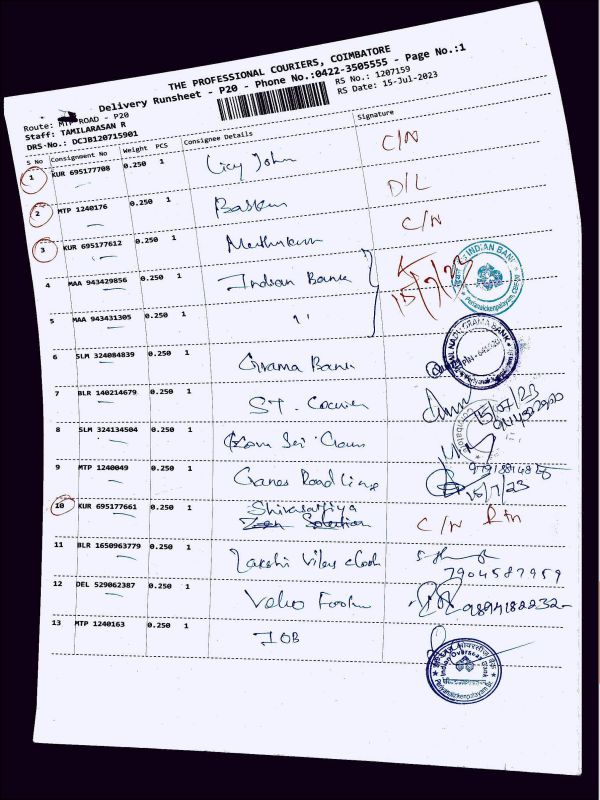 THE PROFESSIONAL COURIERS, COIMBATORE
Delivery Runsheet - P20 - Phone No.:0422-3505555 - Page No.:1
Route: MTP ROAD - P20
RS No.: 1207159
Staff: TAMILARASAN R
RS Date: 15-Jul-2023
DRS-No.: DCJB120715901
S No Consignment No Weight PCS Consignee Details Signature
1 KUR 695177708 0.250 1 John C/N
2 MTP 1240176 0.250 1 D/L
3 KUR 695177612 0.250 1 C/N
4 MAA 943429856 0.250 1 Indian Bank 15/7/23
INDIAN BANK
5 MAA 943431305 0.250 1 "
6 SLM 324084839 0.250 1 Grama Bank
GRAMA BANK
7 BLR 140214679 0.250 1 ST. Courier 15/07/23
8 SLM 324134504 0.250 1 Sri
9 MTP 1240049 0.250 1 15/7/23
10 KUR 695177661 0.250 1 C/N
11 BLR 1650963779 0.250 1 Vilas 7904587959
12 DEL 529062387 0.250 1 9894182232
13 MTP 1240163 0.250 1 IOB
Indian Overseas Bank